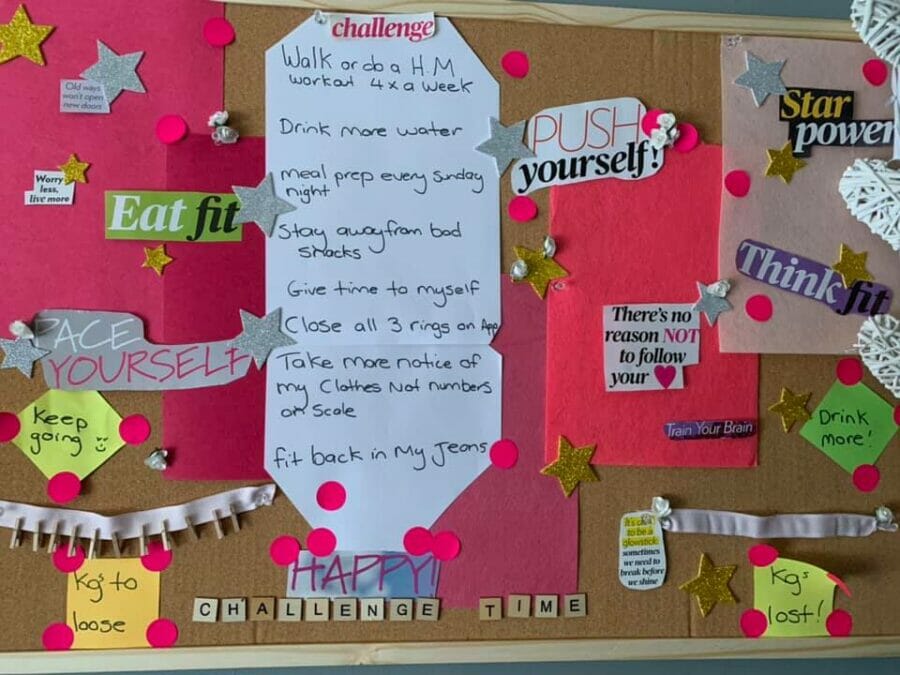 challenge
Walk or do a H.M
workout 4 x a week
Drink more water
meal prep every sunday
night
Stay away from bad
snacks
Give time to myself
Close all 3 rings on App
Take more notice of
my Clothes Not numbers
on Scale
fit back in My Jeans
HAPPY!
CHALLENGE TIME
Old ways
won't open
new doors
Worry
less,
live more
Eat fit
PACE
YOURSELF
Keep
going
Kgs to
loose
PUSH
yourself!
Star
power
Think fit
There's no
reason NOT
to follow
your
Train Your Brain
Drink
more!
It's ok
to be a
glowstick:
sometimes
we need to
break before
we shine
Kgs
lost!